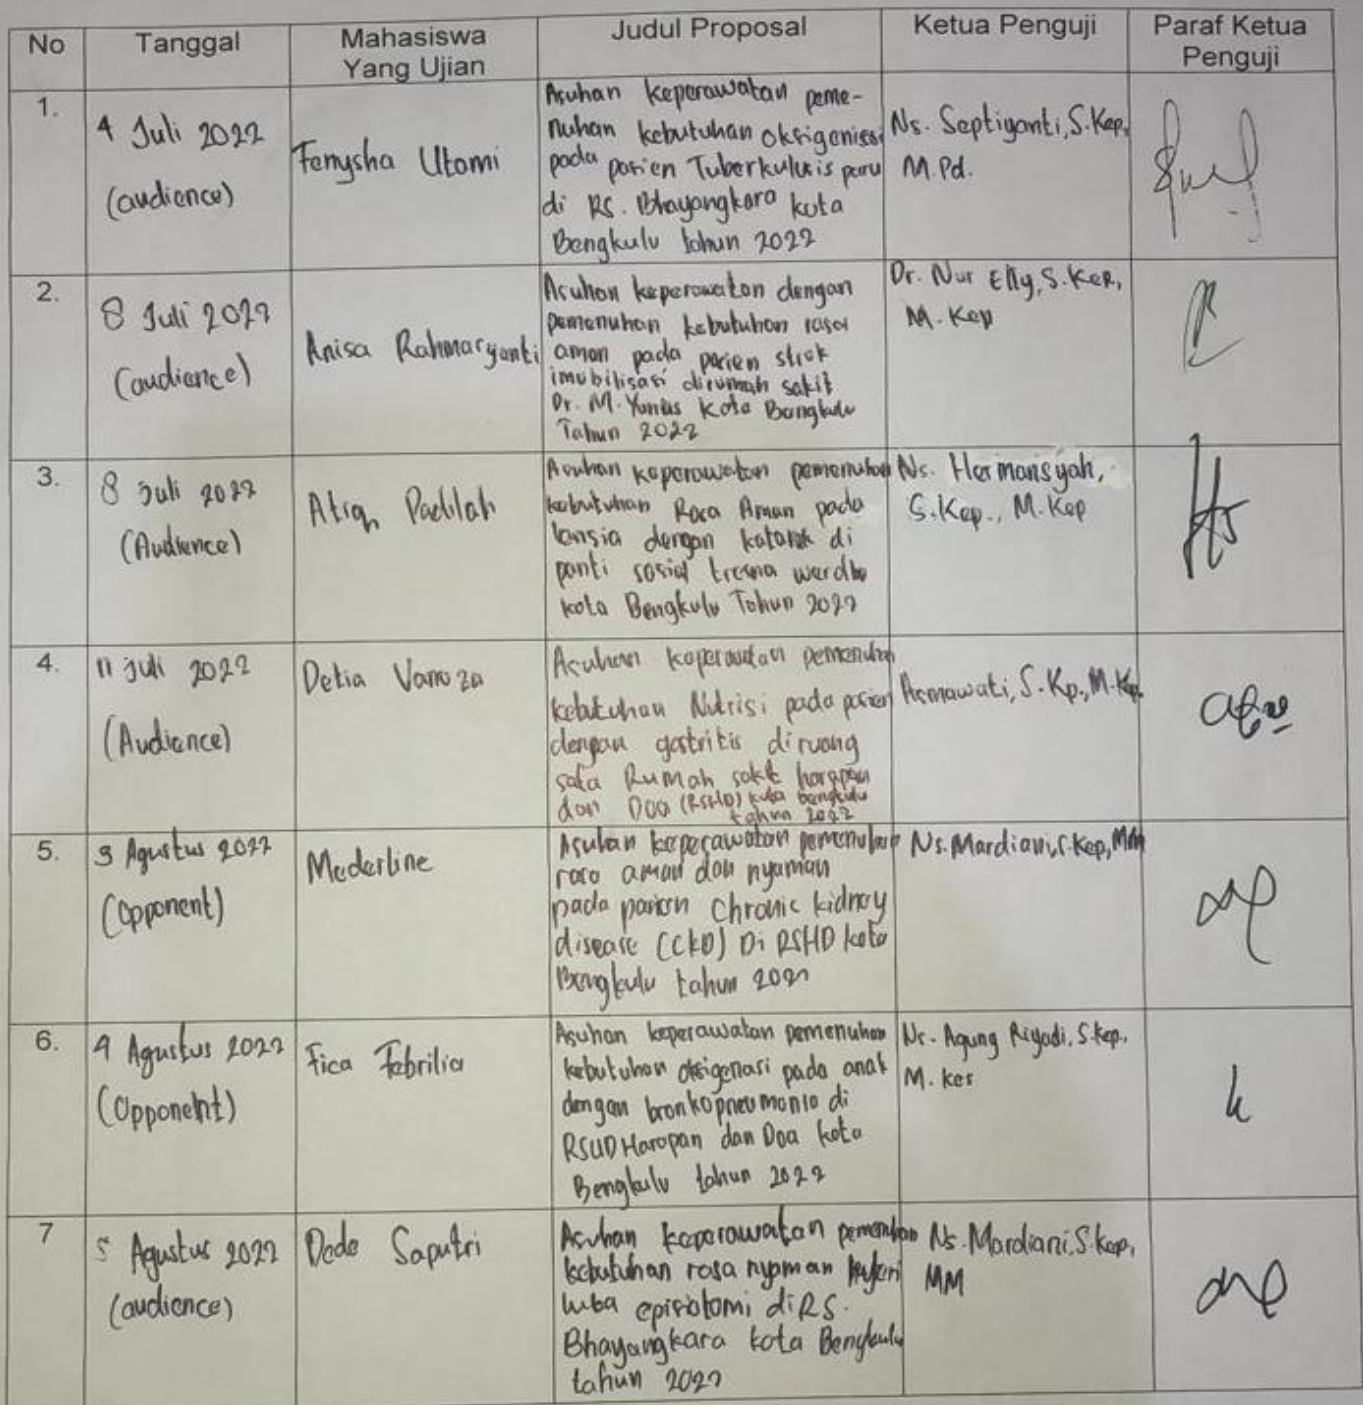 No Tanggal Mahasiswa Yang Ujian Judul Proposal Ketua Penguji Paraf Ketua Penguji
1.
4 Juli 2022
(audience)
Fenysha Utami
Asuhan keperawatan peme-
nuhan kebutuhan oksigenisasi
pada pasien Tuberkulusis paru
di RS. Bhayangkara kota
Bengkulu tahun 2022
Ns. Septiyanti, S.Kep,
M.Pd.
2.
8 Juli 2022
(audience)
Anisa Rahmaryanti
Asuhan keperawatan dengan
pemenuhan kebutuhan rasa
aman pada pasien strok
imobilisasi dirumah sakit
Dr. M. Yunus Kota Bengkulu
Tahun 2022
Dr. Nur Elly, S.Kep,
M. Kep
3.
8 Juli 2022
(Audience)
Padilah
Asuhan keperawatan pemenuhan
kebutuhan Rasa Aman pada
lansia dengan katarak di
panti sosial tresna werdha
kota Bengkulu Tahun 2022
Ns. Hermansyah,
S.Kep., M.Kep
4.
11 Juli 2022
(Audiance)
Detia
Asuhan keperawatan pemenuhan
kebutuhan Nutrisi pada pasien
dengan gastritis diruang
Rumah sakit harapan
dan Doa (RSHD) kota bengkulu
tahun 2022
Asmawati, S.Kp., M.Kep
5.
3 Agustus 2022
(Opponent)
Mederline
Asuhan keperawatan pemenuhan
rasa aman dan nyaman
pada pasien Chronic kidney
disease (CKD) Di RSHD kota
Bengkulu tahun 2022
Ns. Mardiani, S.Kep, MM
6.
4 Agustus 2022
(Opponent)
Fica Febrilia
Asuhan keperawatan pemenuhan
kebutuhan oksigenasi pada anak
dengan bronkopneumonia di
RSUD Harapan dan Doa kota
Bengkulu tahun 2022
Ns. Agung Riyadi, S.Kep.,
M. Kes
7
5 Agustus 2022
(audience)
Dede Saputri
Asuhan keperawatan pemenuhan
kebutuhan rasa nyaman nyeri
luka episiotomi di RS.
Bhayangkara kota Bengkulu
tahun 2022
Ns. Mardiani, S.Kep,
MM